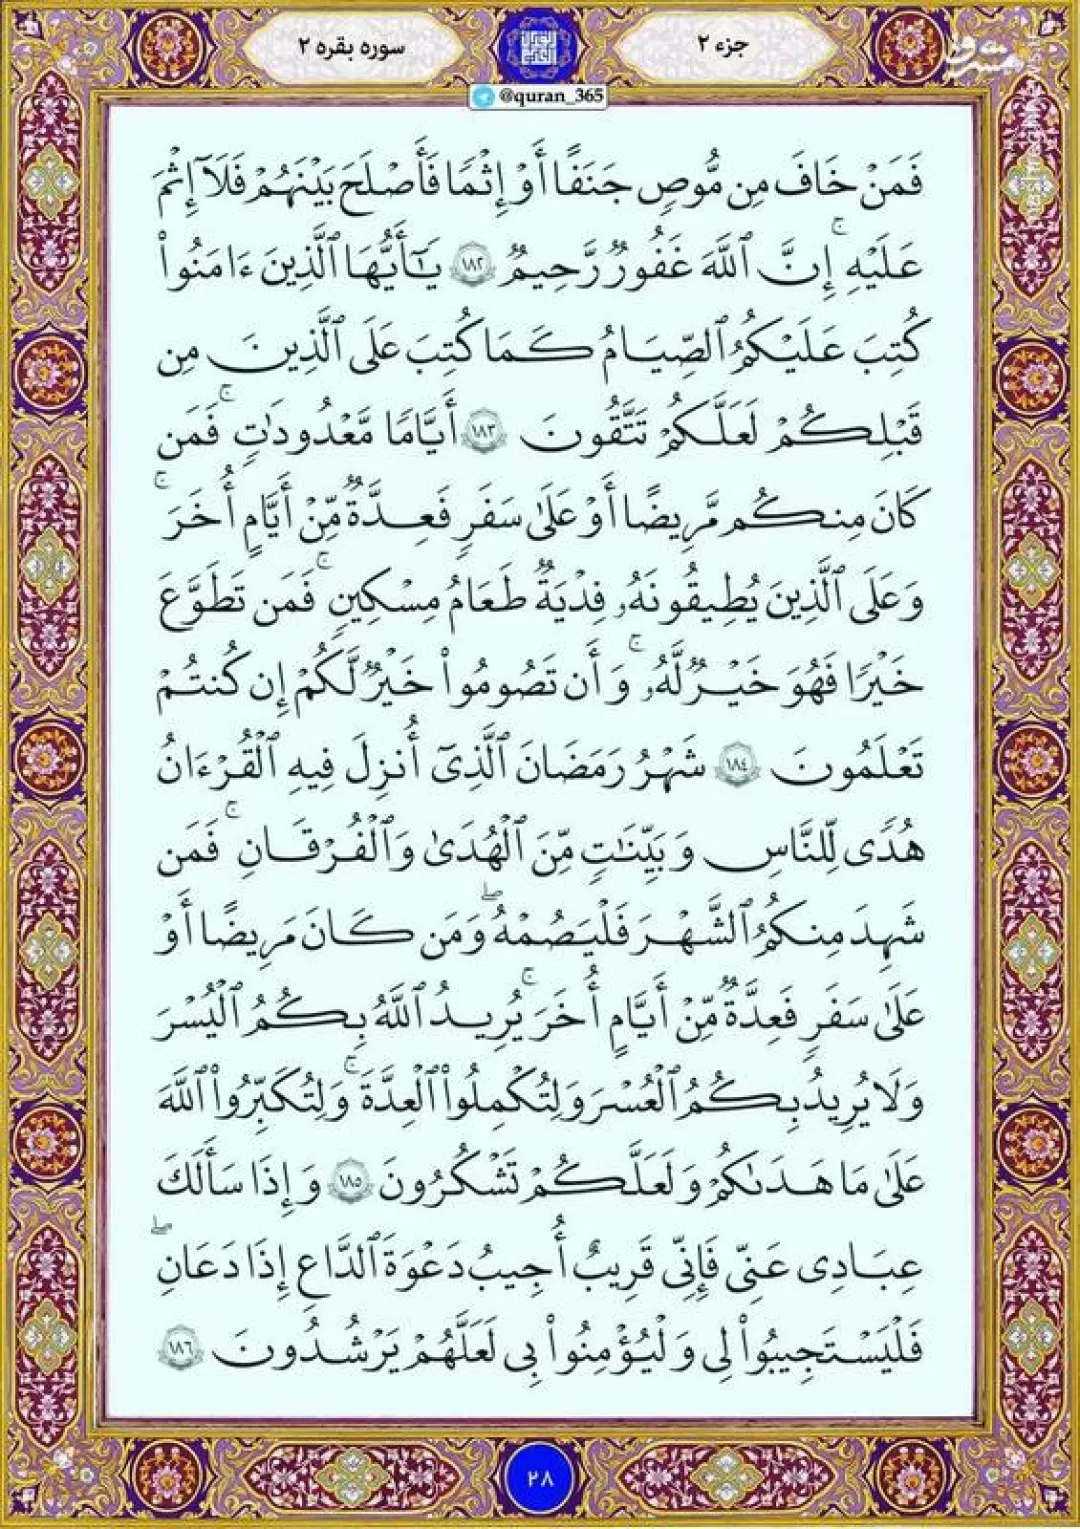 جزء ۲
سوره بقره ۲
@quran_365
مشرق
فَمَنْ خَافَ مِن مُّوصٍ جَنَفًا أَوْ إِثْمًا فَأَصْلَحَ بَيْنَهُمْ فَلَآ إِثْمَ
عَلَيْهِ ۚ إِنَّ ٱللَّهَ غَفُورٌ رَّحِيمٌ ١٨٢ يَـٰٓأَيُّهَا ٱلَّذِينَ ءَامَنُوا۟
كُتِبَ عَلَيْكُمُ ٱلصِّيَامُ كَمَا كُتِبَ عَلَى ٱلَّذِينَ مِن
قَبْلِكُمْ لَعَلَّكُمْ تَتَّقُونَ ١٨٣ أَيَّامًا مَّعْدُودَٰتٍ ۚ فَمَن
كَانَ مِنكُم مَّرِيضًا أَوْ عَلَىٰ سَفَرٍ فَعِدَّةٌ مِّنْ أَيَّامٍ أُخَرَ ۚ
وَعَلَى ٱلَّذِينَ يُطِيقُونَهُۥ فِدْيَةٌ طَعَامُ مِسْكِينٍ ۚ فَمَن تَطَوَّعَ
خَيْرًا فَهُوَ خَيْرٌ لَّهُۥ ۚ وَأَن تَصُومُوا۟ خَيْرٌ لَّكُمْ إِن كُنتُمْ
تَعْلَمُونَ ١٨٤ شَهْرُ رَمَضَانَ ٱلَّذِىٓ أُنزِلَ فِيهِ ٱلْقُرْءَانُ
هُدًى لِّلنَّاسِ وَبَيِّنَـٰتٍ مِّنَ ٱلْهُدَىٰ وَٱلْفُرْقَانِ ۚ فَمَن
شَهِدَ مِنكُمُ ٱلشَّهْرَ فَلْيَصُمْهُ ۖ وَمَن كَانَ مَرِيضًا أَوْ
عَلَىٰ سَفَرٍ فَعِدَّةٌ مِّنْ أَيَّامٍ أُخَرَ ۚ يُرِيدُ ٱللَّهُ بِكُمُ ٱلْيُسْرَ
وَلَا يُرِيدُ بِكُمُ ٱلْعُسْرَ وَلِتُكْمِلُوا۟ ٱلْعِدَّةَ ۚ وَلِتُكَبِّرُوا۟ ٱللَّهَ
عَلَىٰ مَا هَدَىٰكُمْ وَلَعَلَّكُمْ تَشْكُرُونَ ١٨٥ وَإِذَا سَأَلَكَ
عِبَادِى عَنِّى فَإِنِّى قَرِيبٌ أُجِيبُ دَعْوَةَ ٱلدَّاعِ إِذَا دَعَانِ ۖ
فَلْيَسْتَجِيبُوا۟ لِى وَلْيُؤْمِنُوا۟ بِى لَعَلَّهُمْ يَرْشُدُونَ ١٨٦
۲۸